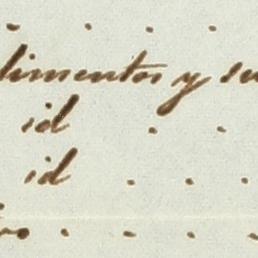 limentos y su
id
id